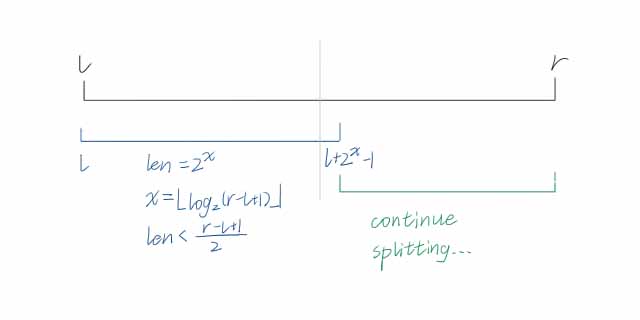 l r
l len = 2^x l+2^x-1
x = ⌊log₂(r-l+1)⌋
len < (r-l+1)/2
continue
splitting...